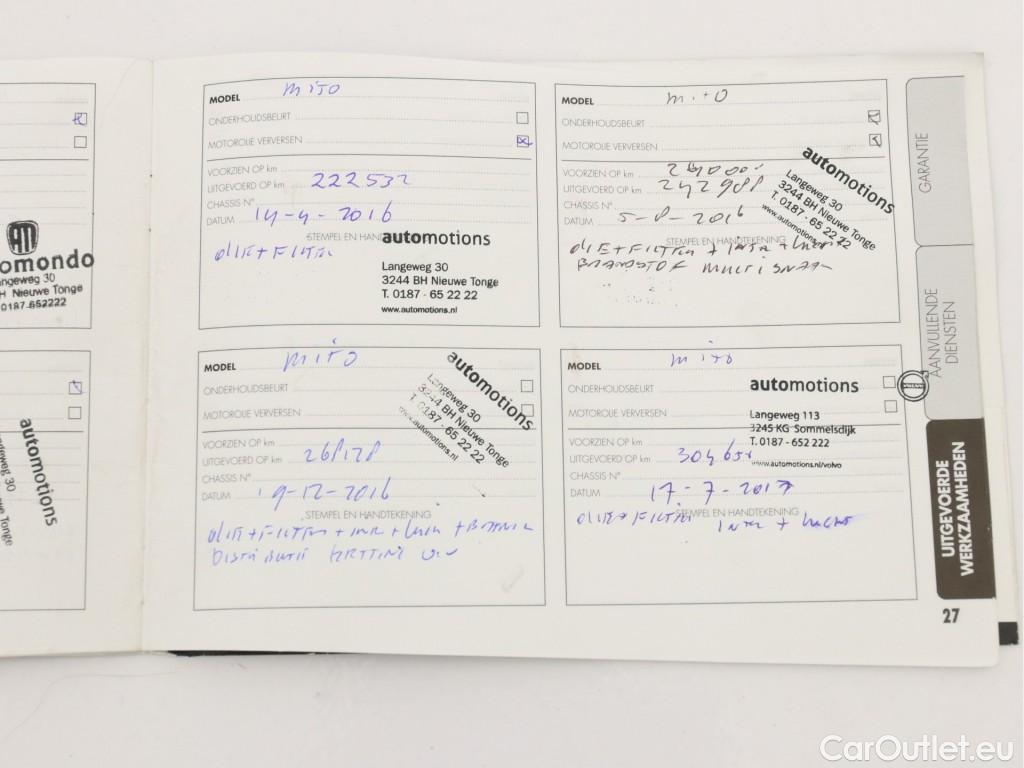 omondo
angeweg 30
H Nieuwe Tonge
0187-652222
automotions
weg 30
we Tonge
MODEL mito
ONDERHOUDSBEURT
MOTOROLIE VERVERSEN
VOORZIEN OP km
UITGEVOERD OP km 222532
CHASSIS N°
DATUM 14-4-2016
STEMPEL EN HANDTEKENING
OLIE + FILTER
automotions
Langeweg 30
3244 BH Nieuwe Tonge
T. 0187 - 65 22 22
www.automotions.nl
MODEL mito
ONDERHOUDSBEURT
MOTOROLIE VERVERSEN
VOORZIEN OP km
UITGEVOERD OP km 242988
CHASSIS N°
DATUM 5-8-2016
STEMPEL EN HANDTEKENING
OLIE + FILTER + INTR + LUCHT
BRANDSTOF MULTISNAAR
automotions
Langeweg 30
3244 BH Nieuwe Tonge
T. 0187 - 65 22 22
www.automotions.nl
MODEL mito
ONDERHOUDSBEURT
MOTOROLIE VERVERSEN
VOORZIEN OP km
UITGEVOERD OP km 268128
CHASSIS N°
DATUM 9-12-2016
STEMPEL EN HANDTEKENING
OLIE + FILTER + INTR + LUCHT
DISTRIBUTIE KETTING
automotions
Langeweg 30
3244 BH Nieuwe Tonge
T. 0187 - 65 22 22
www.automotions.nl
MODEL mito
ONDERHOUDSBEURT
MOTOROLIE VERVERSEN
VOORZIEN OP km
UITGEVOERD OP km 304651
CHASSIS N°
DATUM 17-7-2017
STEMPEL EN HANDTEKENING
OLIE + FILTER INTR + LUCHT
automotions
Langeweg 113
3245 KG Sommelsdijk
T. 0187 - 652 222
www.automotions.nl/volvo
GARANTIE
AANVULLENDE
DIENSTEN
UITGEVOERDE
WERKZAAMHEDEN
27
CarOutlet.eu